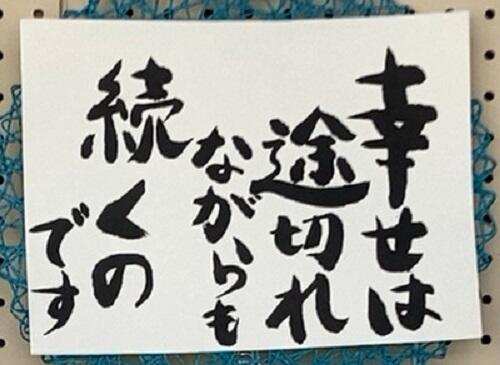 幸せは
途切れ
ながらも
続くの
です